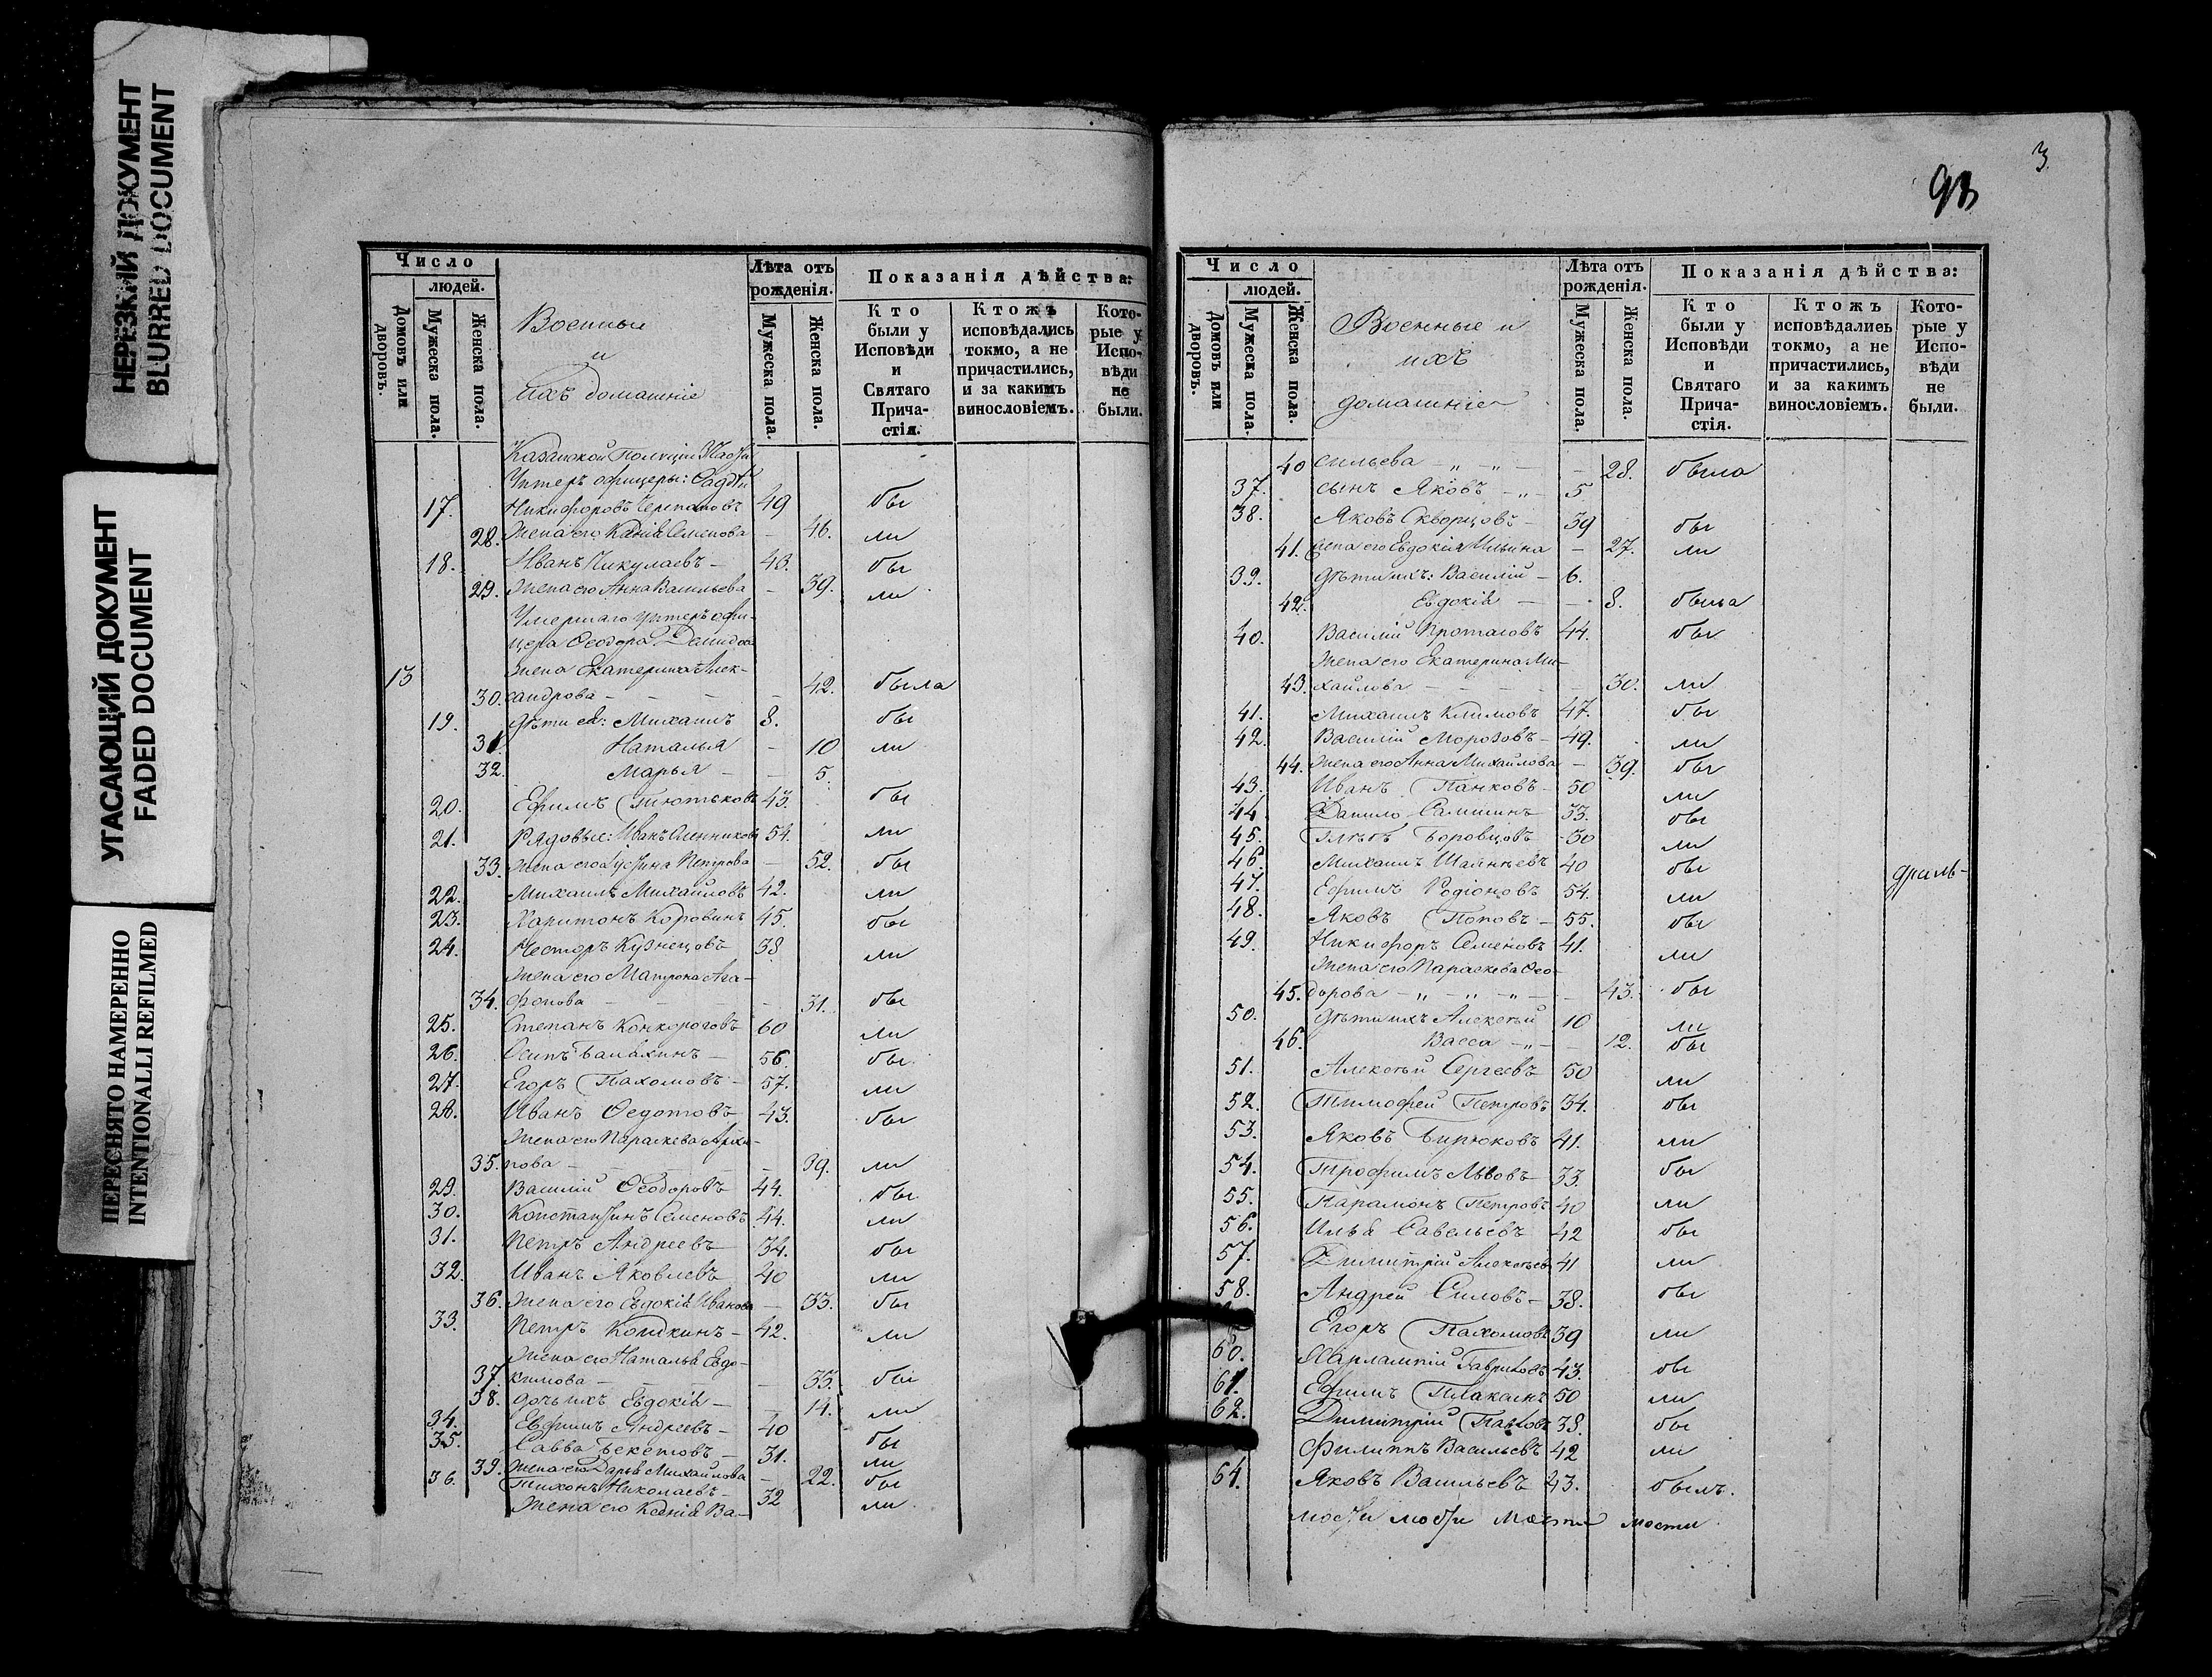 НЕРЕЗКИЙ ДОКУМЕНТ
BLURRED DOCUMENT
УГАСАЮЩИЙ ДОКУМЕНТ
FADED DOCUMENT
ПЕРЕСНЯТО НАМЕРЕННО
INTENTIONALLI REFILMED
Число
людей.
Домовъ или дворовъ.
Мужеска пола.
Женска пола.
Военные
и
ихъ домашніе
Лѣта отъ рожденія.
Мужеска пола.
Женска пола.
Показанія дѣйства:
Кто были у Исповѣди и Святаго Прича-стія.
Ктожъ исповѣдались токмо, а не причастились, и за какимъ винословіемъ.
Кото-рые у Испо-вѣди не были.
Казанской Полиціи
Унтеръ офицеры:
17. Никифоровъ 49 бы
28. Жена его Семенова - 46. ли
18. Иванъ Никулаевъ - 43. бы
29. Жена его Анна Васильева - 39. ли
Умершаго унтеръ офи-
цера Ѳеодора Демидова
13 жена Екатерина Алек-
30. сандрова - 42. была
19. дѣти ея: Михаилъ 8. бы
31. Наталья - 10 ли
32. Марья - 5.
20. Ефимъ Тютьковъ 43. бы
21. Рядовые: Иванъ 54. ли
33. Жена его Петрова - 52. бы
22. Михаилъ Михайловъ 42. ли
23. Харитонъ Коровинъ 45. бы
24. Несторъ Кузнецовъ 38 ли
Жена его Матрона Ага-
34. фонова - 31. бы
25. Степанъ 60 ли
26. Осипъ Балахинъ - 56. бы
27. Егоръ Пахомовъ - 57. ли
28. Иванъ Ѳедотовъ 43. бы
Жена его Параскева Архи-
35. пова - 39. ли
29. Василій Ѳеодоровъ 44. бы
30. Константинъ Семеновъ 44. ли
31. Петръ Андреевъ 34. бы
32. Иванъ Яковлевъ 40 ли
36. Жена его Евдокія Иванова - 33. бы
33. Петръ Кошкинъ - 42. ли
Жена его Наталья Евдо-
37. кимова - 33. бы
38. дочь ихъ Евдокія - 14. ли
34. Ефимъ Андреевъ - 40 бы
35. Савва Бекетовъ - 31. ли
39. Жена его Дарья Михайлова - 22. бы
36. Тихонъ Николаевъ - 32 ли
Жена его Ксенія Ва-
3
93
Число
людей.
Домовъ или дворовъ.
Мужеска пола.
Женска пола.
Военные и
ихъ
домашніе
Лѣта отъ рожденія.
Мужеска пола.
Женска пола.
Показанія дѣйства:
Кто были у Исповѣди и Святаго Прича-стія.
Ктожъ исповѣдались токмо, а не причастились, и за какимъ винословіемъ.
Кото-рые у Испо-вѣди не были.
40 сильева - „ - „ - 28. была
37. сынъ Яковъ - „ - 5
38. Яковъ Скворцовъ - 39 бы
41. Жена его Евдокія Ильина - 27. ли
39. дѣти ихъ: Василій - 6.
42. Евдокія - 8. была
40. Василій Протасовъ 44. бы
Жена его Екатерина Ми-
43. хайлова - 30. ли
41. Михаилъ Климовъ 47. бы
42. Василій Морозовъ - 49. ли
44. Жена его Анна Михайлова - 39. бы
43. Иванъ Панковъ - 50 ли
44. Данило 33. бы
45. Глѣбъ Боровцовъ - 30 ли
46. Михаилъ 40 бы
47. Ефимъ Родіоновъ 54. ли
48. Яковъ Поповъ - 55. бы
49. Никифоръ Семеновъ 41. ли
Жена его Параскева Ѳео-
45. дорова - „ - „ - „ - 43. бы
50. дѣти ихъ Алексѣй 10 ли
46. Васса - „ - 12. бы
51. Алексѣй Сергеевъ 50 ли
52. Тимофей Петровъ 34. бы
53. Яковъ Бирюковъ 41. ли
54. Трофимъ Львовъ 33. бы
55. Парамонъ Петровъ 40 ли
56. Илья Савельевъ 42 бы
57. Димитрій Алексѣевъ 41 ли
58. Андрей Силовъ - 38. бы
Егоръ Пахомовъ 39 ли
60. Харлампій Гавриловъ 43. бы
61. Ефимъ 50 ли
62. Димитрій 38. бы
Филиппъ Васильевъ 42 ли
64. Яковъ Васильевъ 43. былъ.